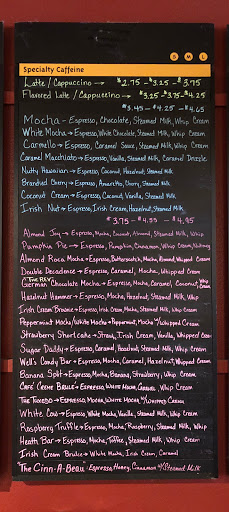 S M L
Specialty Caffeine
Latte / Cappuccino → $2.75 - $3.25 - $3.75
Flavored Latte / Cappuccino → $3.25 - $3.75 - $4.25
$3.45 - $4.25 - $4.65
Mocha → Espresso, Chocolate, Steamed Milk, Whip Cream
White Mocha → Espresso, White Chocolate, Steamed Milk, Whip Cream
Carmello → Espresso, Caramel Sauce, Steamed Milk, Whip Cream
Caramel Macchiato → Espresso, Vanilla, Steamed Milk, Caramel Drizzle
Nutty Hawaiian → Espresso, Coconut, Hazelnut, Steamed Milk
Brandied Cherry → Espresso, Amaretto, Cherry, Steamed Milk
Coconut Cream → Espresso, Coconut, Vanilla, Steamed Milk
Irish Nut → Espresso, Irish Cream, Hazelnut, Steamed Milk
$3.75 - $4.55 - $4.95
Almond Joy → Espresso, Mocha, Coconut, Almond, Steamed Milk, Whip
Pumpkin Pie → Espresso, Pumpkin, Cinnamon, Whip Cream, Nutmeg
Almond Roca Mocha → Espresso, Butterscotch, Mocha, Almond, Whipped Cream
Double Decadence → Espresso, Caramel, Mocha, Whipped Cream
German Chocolate Mocha → Espresso, Mocha, Caramel, Coconut, Whip Cream
Hazelnut Hammer → Espresso, Mocha, Hazelnut, Steamed Milk, Whip
Irish Cream Brownie → Espresso, Irish Cream, Mocha, Steamed Milk, Whip
Peppermint Mocha / White Mocha → Peppermint, Mocha, Whipped Cream
Strawberry Shortcake → Straw, Irish Cream, Vanilla, Whipped
Sugar Daddy → Espresso, Caramel, Hazelnut, Steamed Milk, Whip
Walt's Candy Bar → Espresso, Mocha, Caramel, Hazelnut, Whipped Cream
Banana Split → Espresso, Mocha, Banana, Strawberry, Whip
Café Crème Brulee → Espresso, White Mocha, Caramel, Whip Cream
The Tuxedo → Espresso, Mocha, White Mocha w/ Whipped Cream
White Cow → Espresso, White Mocha, Vanilla, Steamed Milk, Whip Cream
Raspberry Truffle → Espresso, Mocha, Raspberry, Steamed Milk, Whip
Heath Bar → Espresso, Mocha, Toffee, Steamed Milk, Whip Cream
Irish Cream Brulee → White Mocha, Irish Cream, Caramel
*The Cinn-A-Beau → Espresso, Honey, Cinnamon w/ Steamed Milk